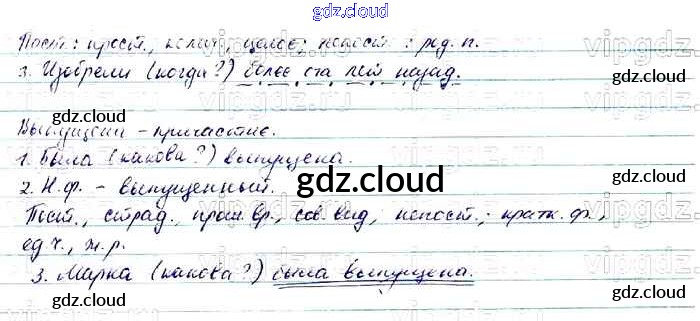 gdz.cloud
Пост.: прост., колич., целое; непост.: род. п.
3. Изобрели (когда?) более ста лет назад.
gdz.cloud gdz.cloud
Выпущена - причастие.
1. Была (какова?) выпущена.
gdz.cloud
2. Н.ф. - выпущенный.
Пост., страд., прош. вр., сов. вид, непост.: кратк. ф.,
ед. ч., ж. р.
3. Марка (какова?) была выпущена.
gdz.cloud gdz.cloud
gdz.cloud